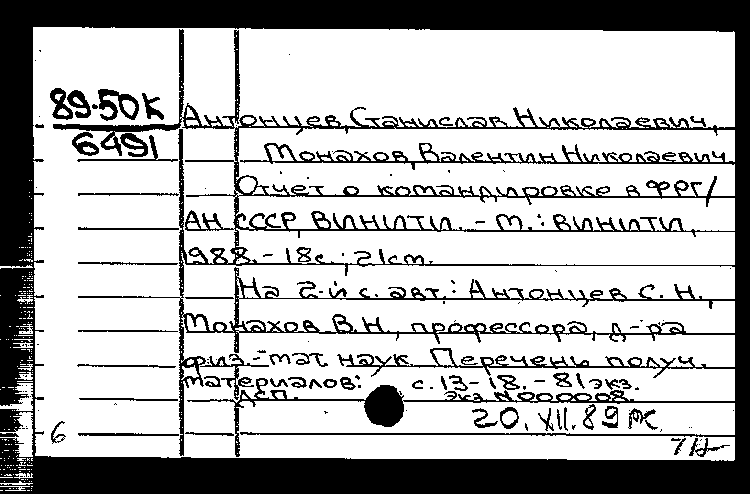 89-50К
6491
Антонцев, Станислав Николаевич,
Монахов, Валентин Николаевич
Отчет о командировке в ФРГ/
АН СССР, ВИНИТИ. - М.: ВИНИТИ,
1988. - 18с.; 21см.
На 2-й с. авт.: Антонцев С. Н.,
Монахов В.Н., профессора, д-ра
физ.-мат. наук. Перечень получ.
материалов: с. 13-18. - 81 экз.
ДСП. Экз. N 000008.
20. XII. 89
6